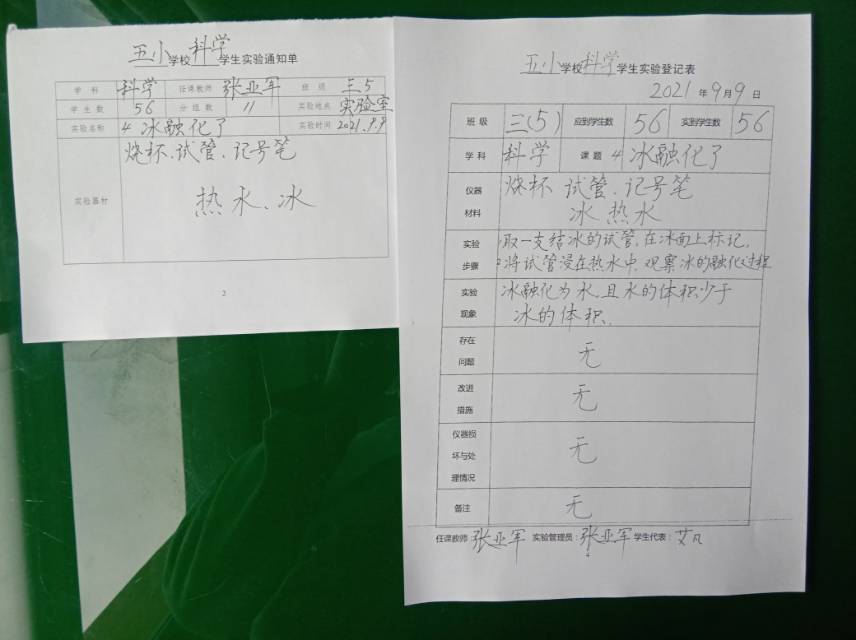 五小学校科学学生实验通知单
学科 科学 任课教师 张亚军 班级 三.5
学生数 56 分组数 11 实验地点 实验室
实验名称 4 冰融化了 实验时间 2021.9.9
实验器材 烧杯、试管、记号笔
热水、冰
2
五小学校科学学生实验登记表
2021年9月9日
班级 三(5) 应到学生数 56 实到学生数 56
学科 科学 课题 4 冰融化了
仪器材料 烧杯 试管、记号笔
冰 热水
实验步骤 1取一支结冰的试管,在冰面上标记.
2将试管浸在热水中,观察冰的融化过程
实验现象 冰融化为水,且水的体积少于
冰的体积.
存在问题 无
改进措施 无
仪器损坏与处理情况 无
备注 无
任课教师 张亚军 实验管理员:张亚军 学生代表:艾凡
4